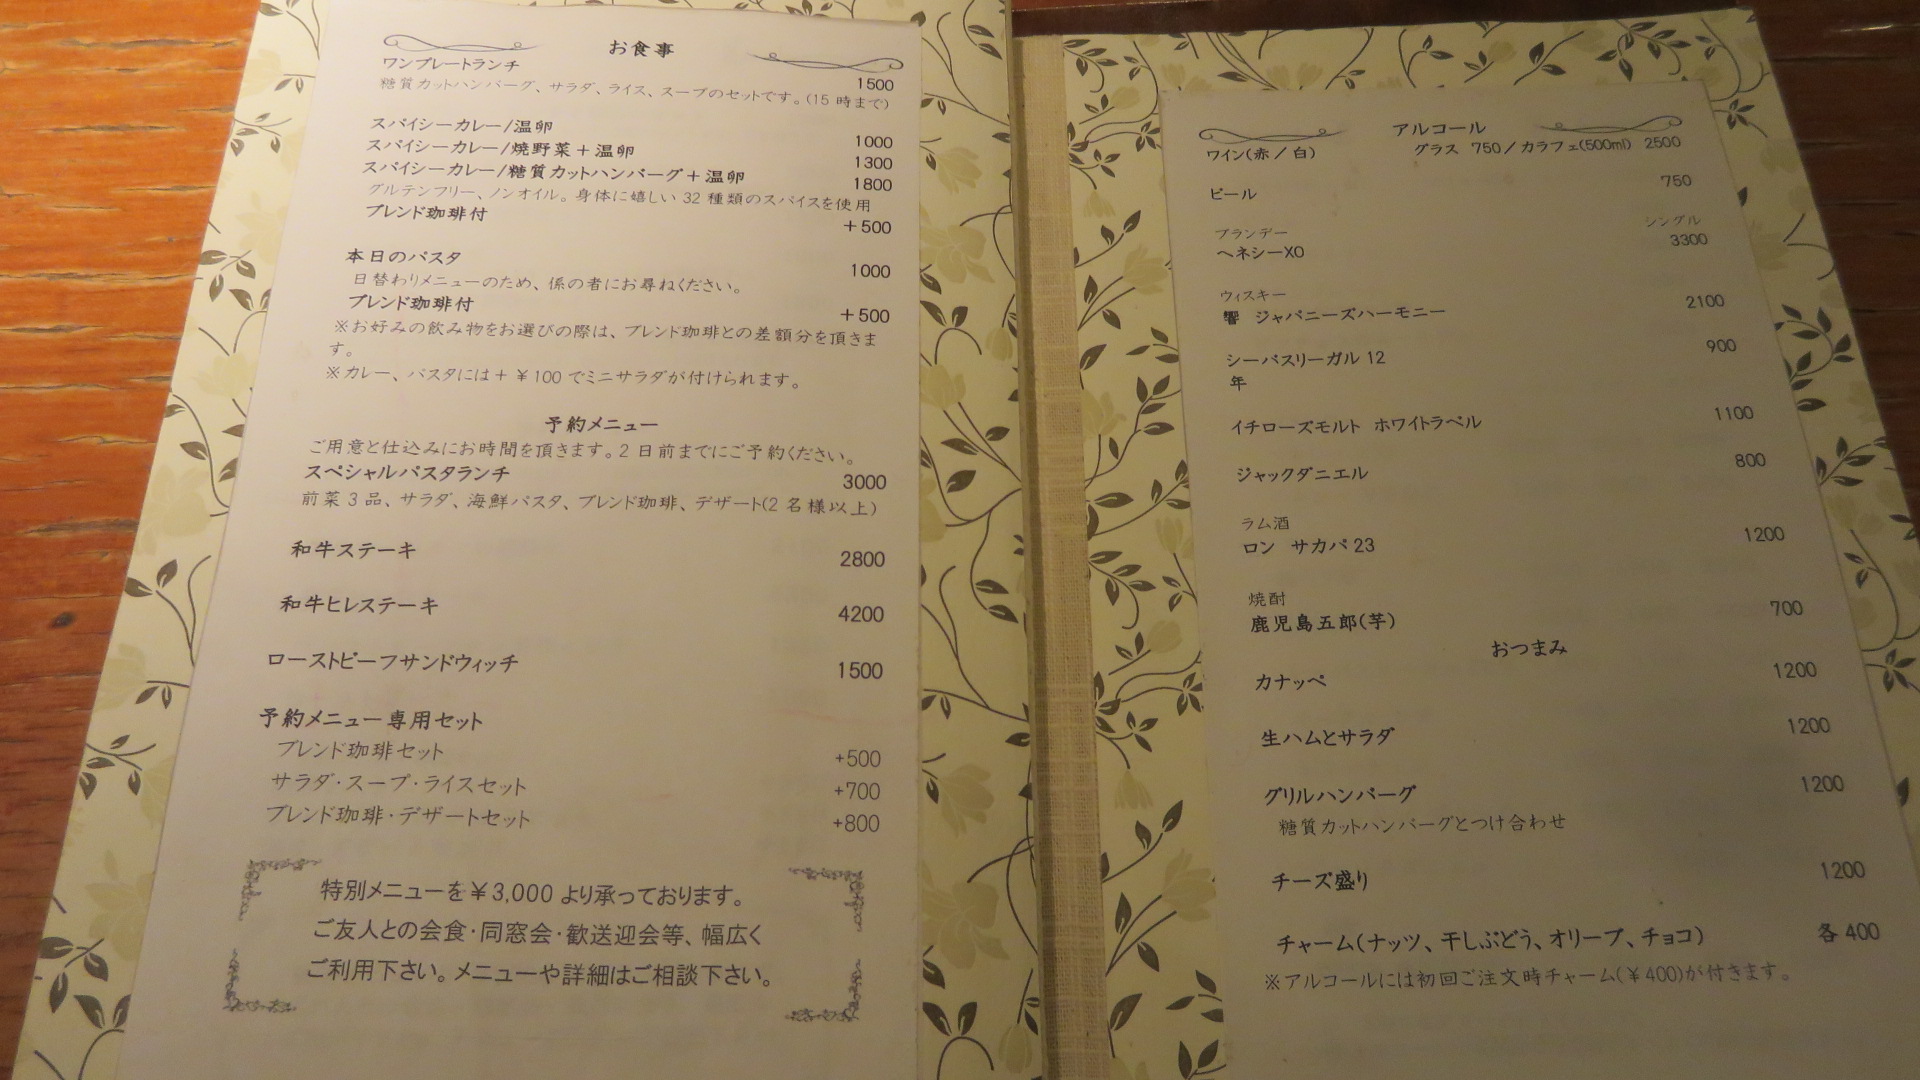 お食事
ワンプレートランチ 1500
糖質カットハンバーグ、サラダ、ライス、スープのセットです。(15 時まで)
スパイシーカレー/温卵 1000
スパイシーカレー/焼野菜＋温卵 1300
スパイシーカレー/糖質カットハンバーグ＋温卵 1800
グルテンフリー、ノンオイル。身体に嬉しい 32 種類のスパイスを使用
ブレンド珈琲付 ＋500
本日のパスタ 1000
日替わりメニューのため、係の者にお尋ねください。
ブレンド珈琲付 ＋500
※お好みの飲み物をお選びの際は、ブレンド珈琲との差額分を頂きま
す。
※カレー、パスタには＋￥100 でミニサラダが付けられます。
予約メニュー
ご用意と仕込みにお時間を頂きます。2 日前までにご予約ください。
スペシャルパスタランチ 3000
前菜 3 品、サラダ、海鮮パスタ、ブレンド珈琲、デザート(2 名様以上)
和牛ステーキ 2800
和牛ヒレステーキ 4200
ローストビーフサンドウィッチ 1500
予約メニュー専用セット
ブレンド珈琲セット +500
サラダ・スープ・ライスセット +700
ブレンド珈琲・デザートセット +800
特別メニューを￥3,000 より承っております。
ご友人との会食・同窓会・歓送迎会等、幅広く
ご利用下さい。メニューや詳細はご相談下さい。
アルコール
ワイン(赤／白) グラス 750／カラフェ(500ml) 2500
ビール 750
ブランデー シングル
ヘネシーXO 3300
ウィスキー
響 ジャパニーズハーモニー 2100
シーバスリーガル 12 900
年
イチローズモルト ホワイトラベル 1100
ジャックダニエル 800
ラム酒
ロン サカパ 23 1200
焼酎
鹿児島五郎(芋) 700
おつまみ
カナッペ 1200
生ハムとサラダ 1200
グリルハンバーグ 1200
糖質カットハンバーグとつけ合わせ
チーズ盛り 1200
チャーム(ナッツ、干しぶどう、オリーブ、チョコ) 各 400
※アルコールには初回ご注文時チャーム(￥400)が付きます。